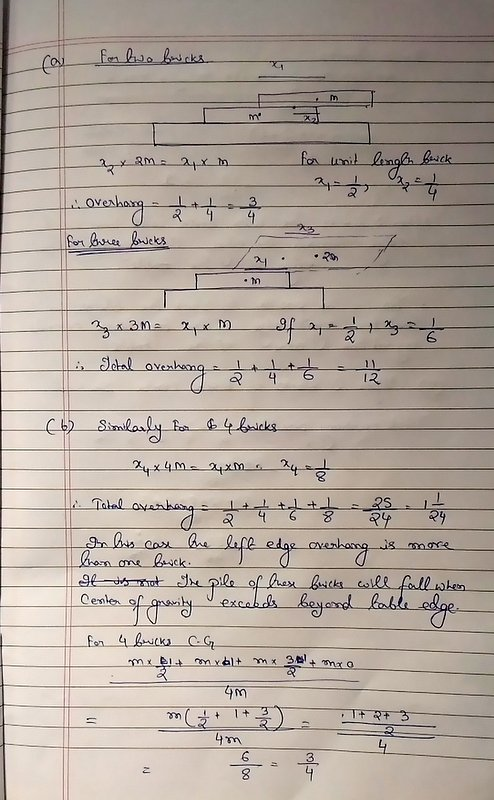 (a) For two bricks
x₁
m
m
x₂
x₂ × 2m = x₁ × m For unit length brick
x₁ = 1/2, x₂ = 1/4
∴ Overhang = 1/2 + 1/4 = 3/4
For three bricks
x₃
x₁ 2m
m
x₃ × 3m = x₁ × m If x₁ = 1/2, x₃ = 1/6
∴ Total overhang = 1/2 + 1/4 + 1/6 = 11/12
(b) Similarly For 4 bricks
x₄ × 4m = x₁ × m ∴ x₄ = 1/8
∴ Total overhang = 1/2 + 1/4 + 1/6 + 1/8 = 25/24 = 1 1/24
In this case the left edge overhang is more
than one brick.
It is not The pile of these bricks will fall when
Center of gravity exceeds beyond table edge.
For 4 bricks C.G
m × 1/2 + m × 1 + m × 3/2 + m × 0
4m
= m(1/2 + 1 + 3/2) / 4m = (1+2+3)/2 / 4
= 6/8 = 3/4